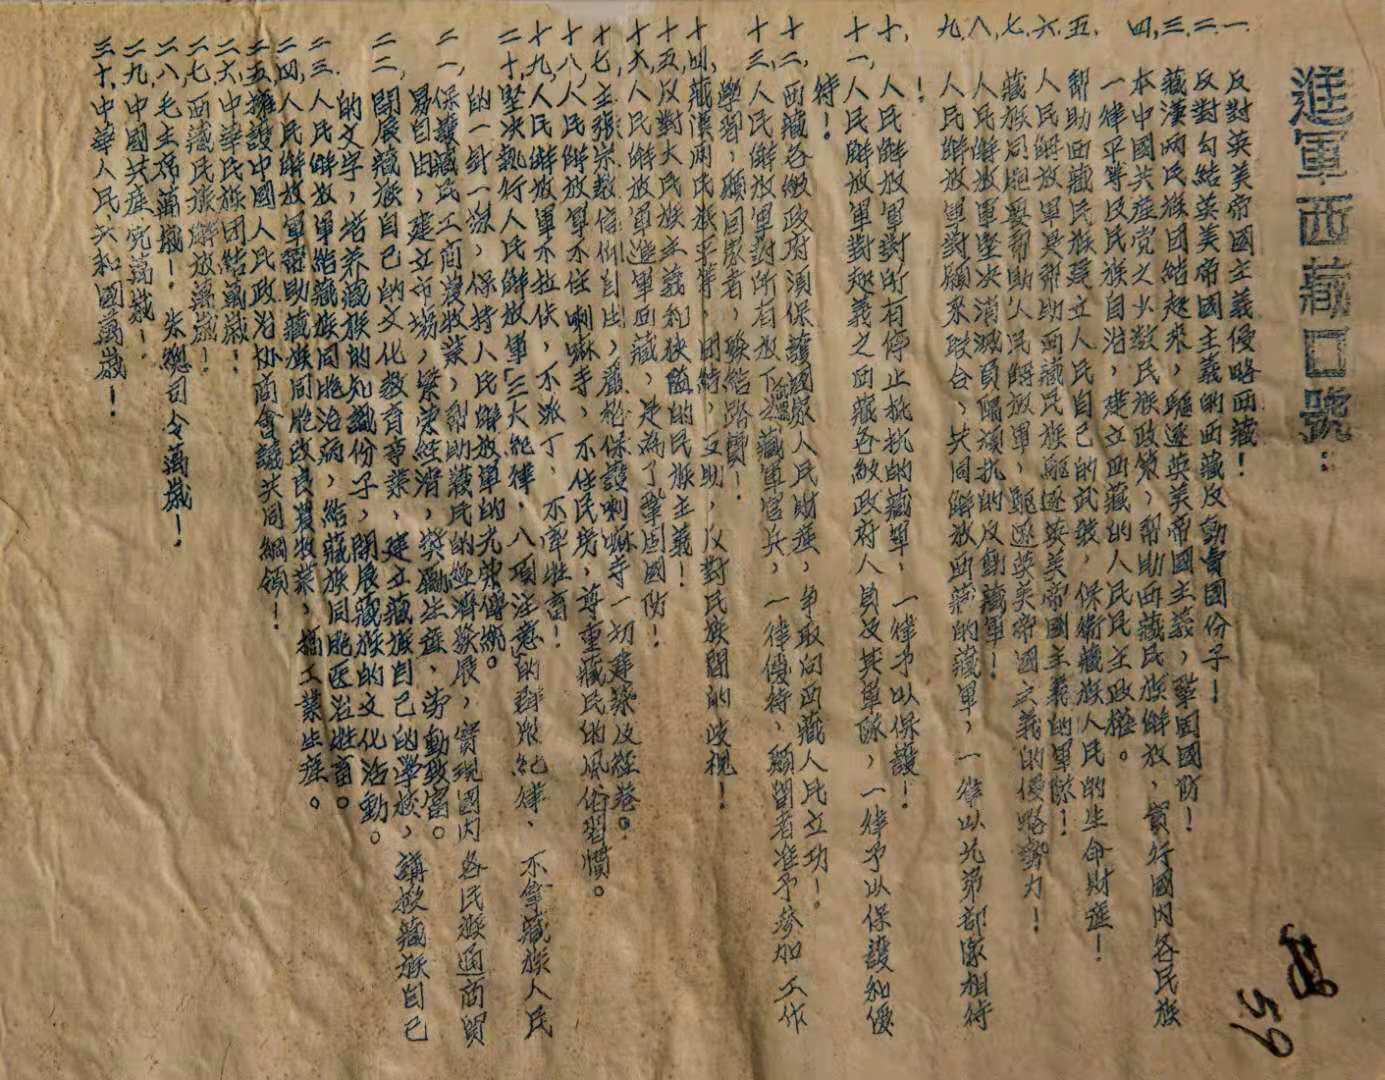 進軍西藏口號：
一、反對英美帝國主義侵略西藏！
二、反對勾結英美帝國主義的西藏反動賣國份子！
三、藏漢兩民族团結起來，驅逐英美帝國主義，鞏固國防！
四、本中國共產党之少数民族政策，幫助西藏民族解放，實行國内各民族
一律平等及民族自治，建立西藏的人民民主政權。
五、幫助西藏民族建立人民自己的武装，保衛藏族人民的生命財產！
六、人民解放軍是幫助西藏民族驅逐英美帝國主義的軍隊！
七、藏族同胞要帮助人民解放軍，驅逐英美帝國主義的侵略势力！
八、人民解放軍坚决消滅負隅頑抗的反動藏軍！
九、人民解放軍對願來联合、共同解放西藏的藏軍，一律以兄弟部隊相待
！
十、人民解放軍對所有停止抵抗的藏軍，一律予以保護！
十一、人民解放軍對起義之西藏各級政府人員及其軍隊，一律予以保護和優
待！
十二、西藏各級政府須保護國家人民財產，争取向西藏人民立功！
十三、人民解放軍對所有放下武器之藏軍官兵，一律優待，願留者准予参加工作
學習，願回家者，發給路費！
十四、藏漢兩民族平等，团結，互助，反對民族間的歧視！
十五、反對大民族主義和狹隘的民族主義！
十六、人民解放軍進軍西藏，是為了鞏固國防！
十七、主張宗教信仰自由，嚴格保護喇嘛寺一切建築及經卷。
十八、人民解放軍不住喇嘛寺，不住民房，尊重藏民的風俗習慣。
十九、人民解放軍不拉伕，不派丁，不牽牲畜！
二十、坚决執行人民解放軍「三大紀律，八項注意」的群眾紀律，不拿藏族人民
的一針一線，保持人民解放軍的光荣傳統。
二一、保護藏民工商農牧業，幫助藏民的經濟發展，實現國内各民族通商貿
易自由，建立市場，繁荣經濟，獎勵生產，劳動致富。
二二、開展藏族自己的文化教育事業，建立藏族自己的學校，講授藏族自己
的文字，培养藏族的知識份子，開展藏族的文化活動。
二三、人民解放軍給藏族同胞治病，給藏族同胞医治牲畜。
二四、人民解放軍帮助藏族同胞改良農牧業，搞工業生產。
二五、擁護中國人民政治协商會議共同綱領！
二六、中華民族团結萬歲！
二七、西藏民族解放萬歲！
二八、毛主席萬歲！朱總司令萬歲！
二九、中國共產党萬歲！
三十、中華人民共和國萬歲！
59